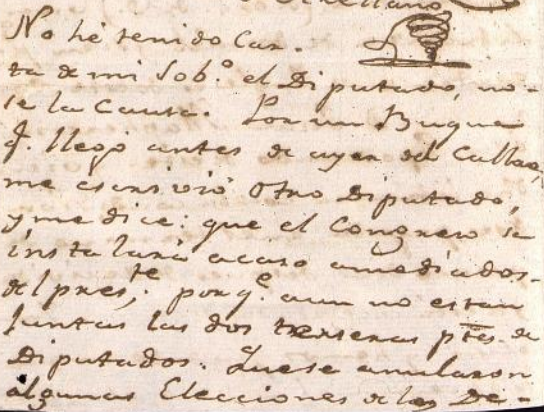 No hé tenido Car-
ta de mi Sob.º el Diputado, no-
se la Causa. Por un Buque
q. llegó antes de ayer del Callao,
me escrivió Otro Diputado,
y me dice: que el Congreso se
instalará acaso amediados-
del pres.te porq.e aun no estan
Juntas las dos terseras ptes. de
Diputados. Que se anularon
algunas Elecciones de los De-